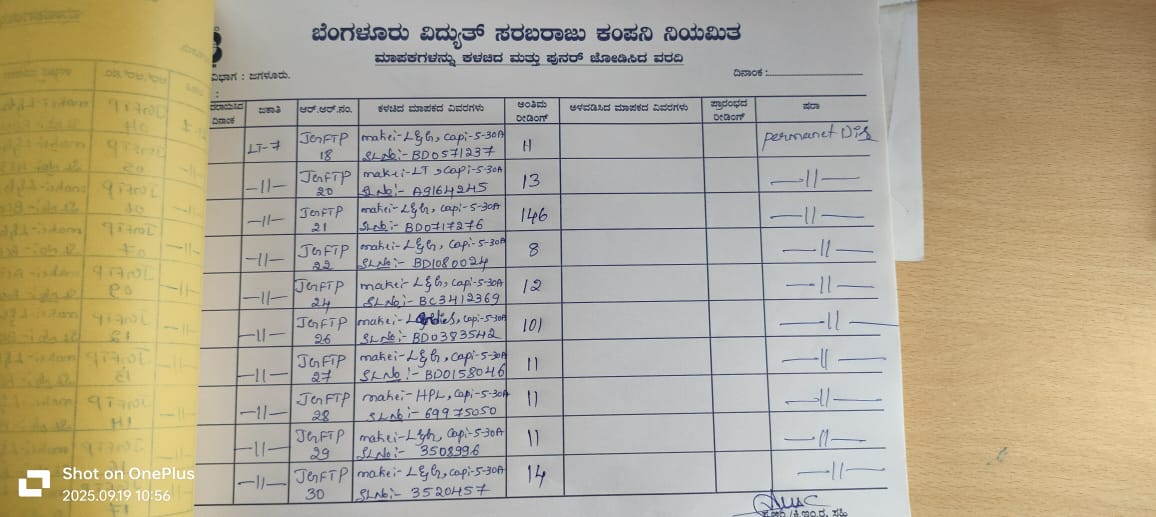 ಬೆಂಗಳೂರು ವಿದ್ಯುತ್ ಸರಬರಾಜು ಕಂಪನಿ ನಿಯಮಿತ
ಮಾಪಕಗಳನ್ನು ಕಳಚಿದ ಮತ್ತು ಪುನರ್ ಜೋಡಿಸಿದ ವರದಿ
ವಿಭಾಗ : ಜಗಳೂರು. ದಿನಾಂಕ :
:
ದಿನಾಂಕ ಜಕಾತಿ ಆರ್.ಆರ್.ನಂ. ಕಳಚಿದ ಮಾಪಕದ ವಿವರಗಳು ಅಂತಿಮ ರೀಡಿಂಗ್ ಅಳವಡಿಸಿದ ಮಾಪಕದ ವಿವರಗಳು ಪ್ರಾರಂಭದ ರೀಡಿಂಗ್ ಷರಾ
LT-7 JGFTP make:-L&G, Capi-5-30A 11 permanet Dis
18 SLNo:- BD0571237
-11- JGFTP make:-LT, Capi-5-30A 13 -11-
20 SLNo:- A9164245
-11- JGFTP make:-L&G, Capi-5-30A 146 -11-
21 SLNo:- BD0717276
-11- JGFTP make:-L&G, Capi-5-30A 8 -11-
22 SLNo:- BD1080024
-11- JGFTP make:-L&G, Capi-5-30A 12 -11-
24 SLNo:- BC3412369
-11- JGFTP make:- Capi-5-30A 101 -11-
26 SLNo:- BD0383542
-11- JGFTP make:-L&G, Capi-5-30A 11 -11-
27 SLNo:- BD0158046
-11- JGFTP make:-HPL, Capi-5-30A 11 -11-
28 SLNo:- 69975050
-11- JGFTP make:-L&G, Capi-5-30A 11 -11-
29 SLNo:- 3508996
-11- JGFTP make:-L&G, Capi-5-30A 14 -11-
30 SLNo:- 3520457
Shot on OnePlus
2025.09.19 10:56